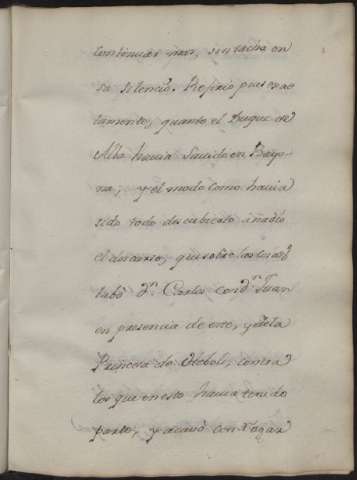 continuar mas, sin tacha en
su silencio. Refirio pues exac
tamente, quanto el Duque de
Alba havia savido en Bayo-
na; y el modo como havia
sido todo descubierto añadio
el discurso, que sobre
tubo Dn. Carlos con Dn. Juan
en presencia de este, y de la
Princesa de Eboli, contra
los que en esto havia tenido
parte, y acavó con rogar